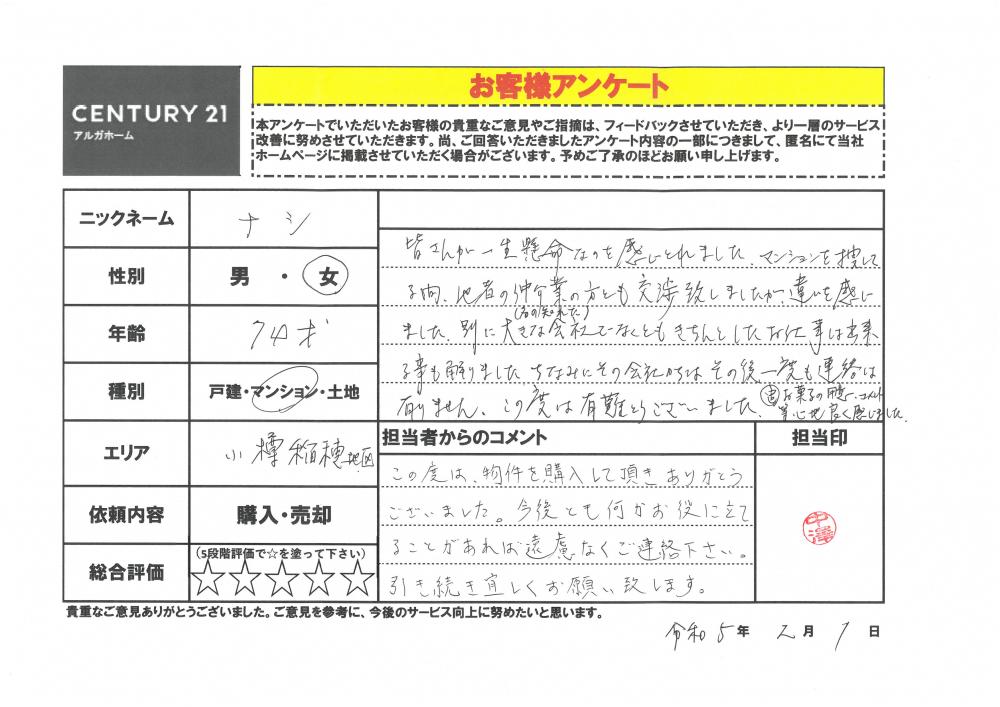 CENTURY 21
アルガホーム
お客様アンケート
本アンケートでいただいたお客様の貴重なご意見やご指摘は、フィードバックさせていただき、より一層のサービス
改善に努めさせていただきます。尚、ご回答いただきましたアンケート内容の一部につきまして、匿名にて当社
ホームページに掲載させていただく場合がございます。予めご了承のほどお願い申し上げます。
ニックネーム
ナシ
性別
男・女
年齢
74才
種別
戸建・マンション・土地
エリア
小樽稲穂地区
依頼内容
購入・売却
総合評価
(5段階評価で☆を塗って下さい)
☆☆☆☆☆
皆さんが一生懸命なのを感じとれました。マンションを捜して
る間、他者の仲介業の方とも交渉致しましたが、違いを感じ
(名の知れた)
ました。別に大きな会社でなくともきちんとしたお仕事は出来
る事も解りました ちなみにその会社からはその後一度も連絡は
有りません、この度は有難とうございました。
お菓子の用意、コメント
皆心地良く感じました。
担当者からのコメント
この度は、物件を購入して頂きありがとう
ございました。今後とも何かお役に立て
ることがあれば遠慮なくご連絡下さい。
引き続き宜しくお願い致します。
担当印
中澤
貴重なご意見ありがとうございました。ご意見を参考に、今後のサービス向上に努めたいと思います。
令和5年2月1日